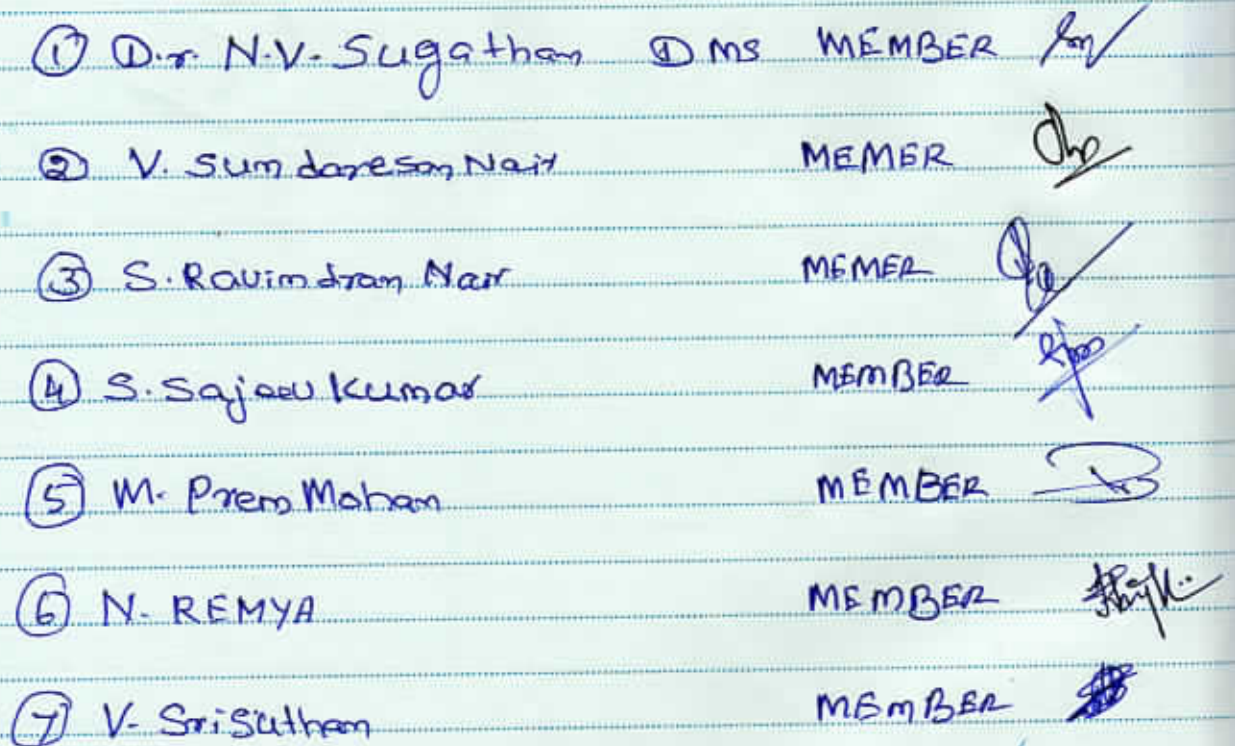 ① D.r. N.V. Sugathan DMS MEMBER
② V. Sundaresan Nair MEMER
③ S. Ravindran Nair MEMER
④ S. Sajeev Kumar MEMBER
⑤ M. Prem Mohan MEMBER
⑥ N. REMYA MEMBER
⑦ V. Srisuthan MEMBER